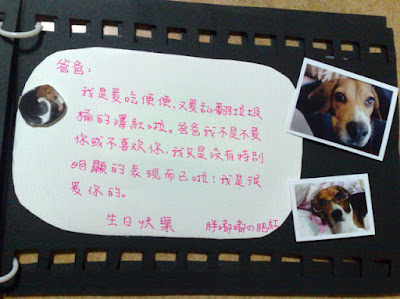 爸爸：
我是愛吃便便，又愛乱翻垃圾
桶的澤紅啦。爸爸我不是不愛
你或不喜歡你，我只是沒有特別
明顯的表現而已啦！我是很
愛你的。
生日快樂 胖嘟嘟の肥紅